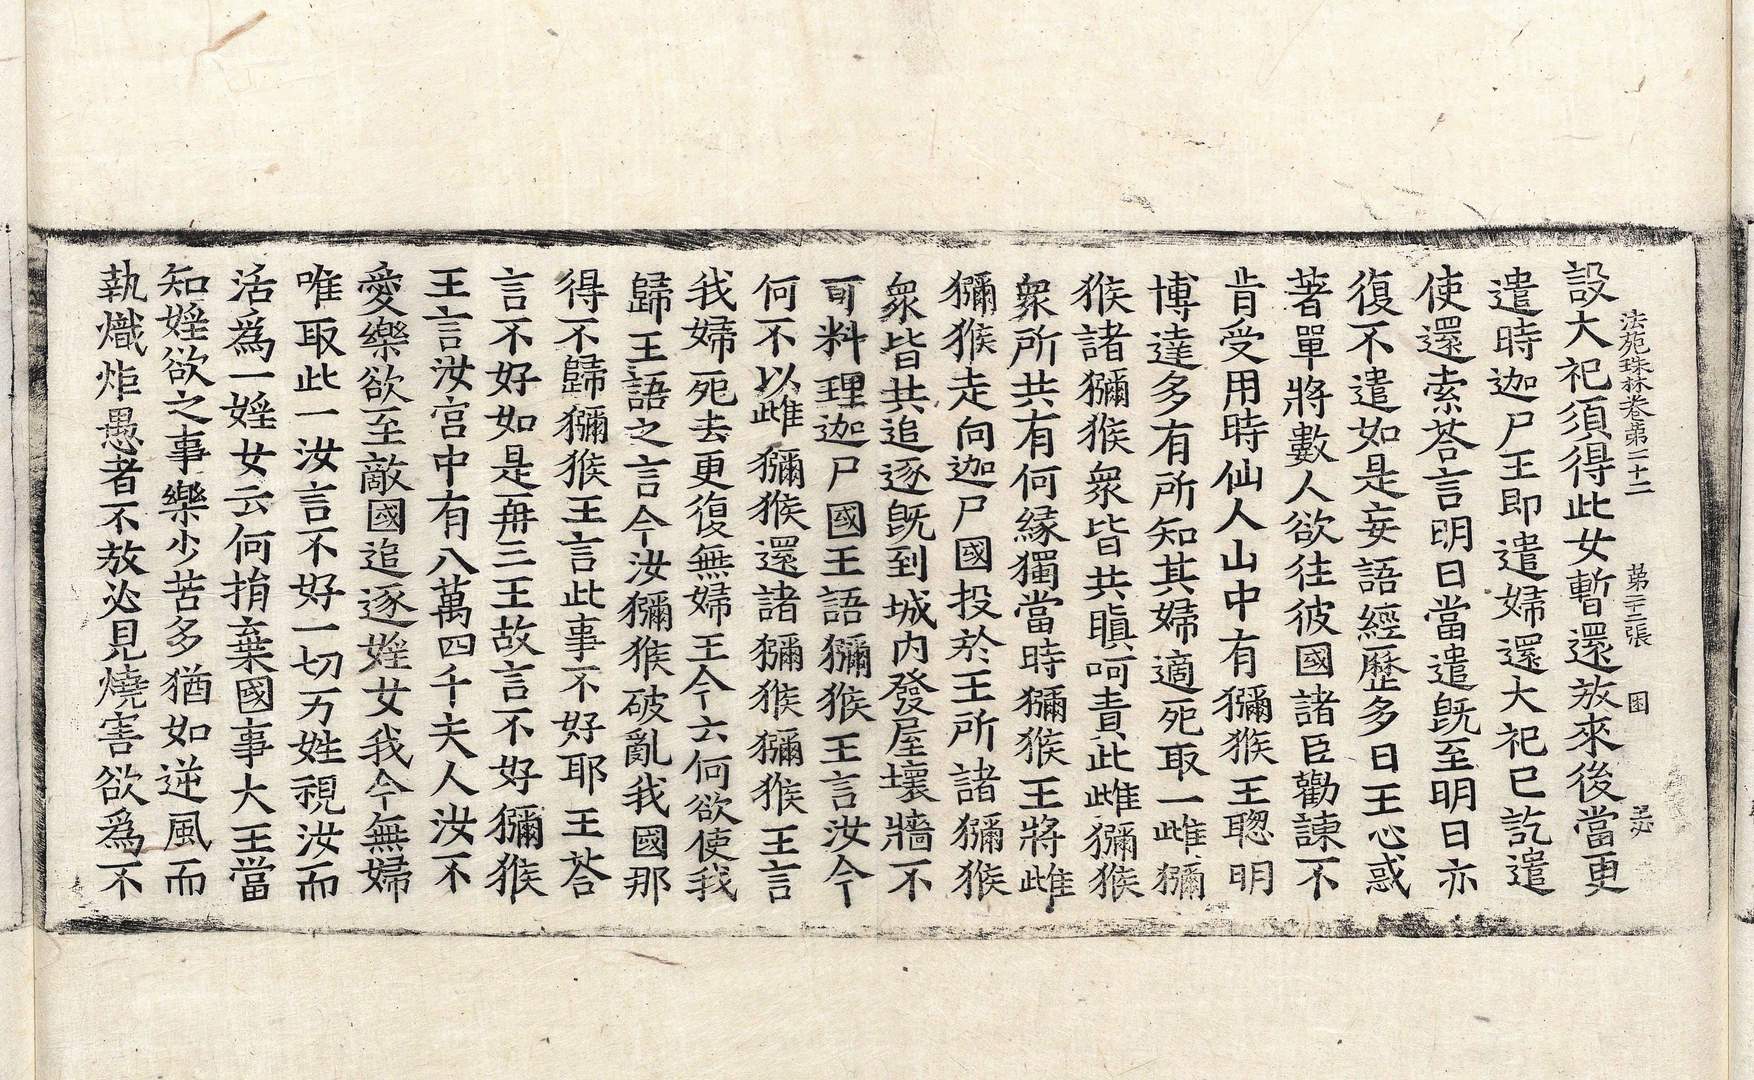 法苑珠林卷第二十二　第二十三張　困
設大祀須得此女暫還放來後當更
遣時迦尸王即遣婦還大祀已訖遣
使還索荅言明日當遣旣至明日亦
復不遣如是妄語經歷多日王心惑
著單將數人欲往彼國諸臣勸諫不
肯受用時仙人山中有獼猴王聦明
博達多有所知其婦適死取一雌獼
猴諸獼猴衆皆共瞋呵責此雌獼猴
衆所共有何緣獨當時獼猴王將雌
獼猴走向迦尸國投於王所諸獼猴
衆皆共追逐旣到城内發屋壞牆不
可料理迦尸國王語獼猴王言汝今
何不以雌獼猴還諸獼猴獼猴王言
我婦死去更復無婦王今云何欲使我
歸王語之言今汝獼猴破亂我國那
得不歸獼猴王言此事不好耶王荅
言不好如是再三王故言不好獼猴
王言汝宮中有八萬四千夫人汝不
愛樂欲至敵國追逐婬女我今無婦
唯取此一汝言不好一切万姓視汝而
活爲一婬女云何捐棄國事大王當
知婬欲之事樂少苦多猶如逆風而
執熾炬愚者不放必見燒害欲爲不